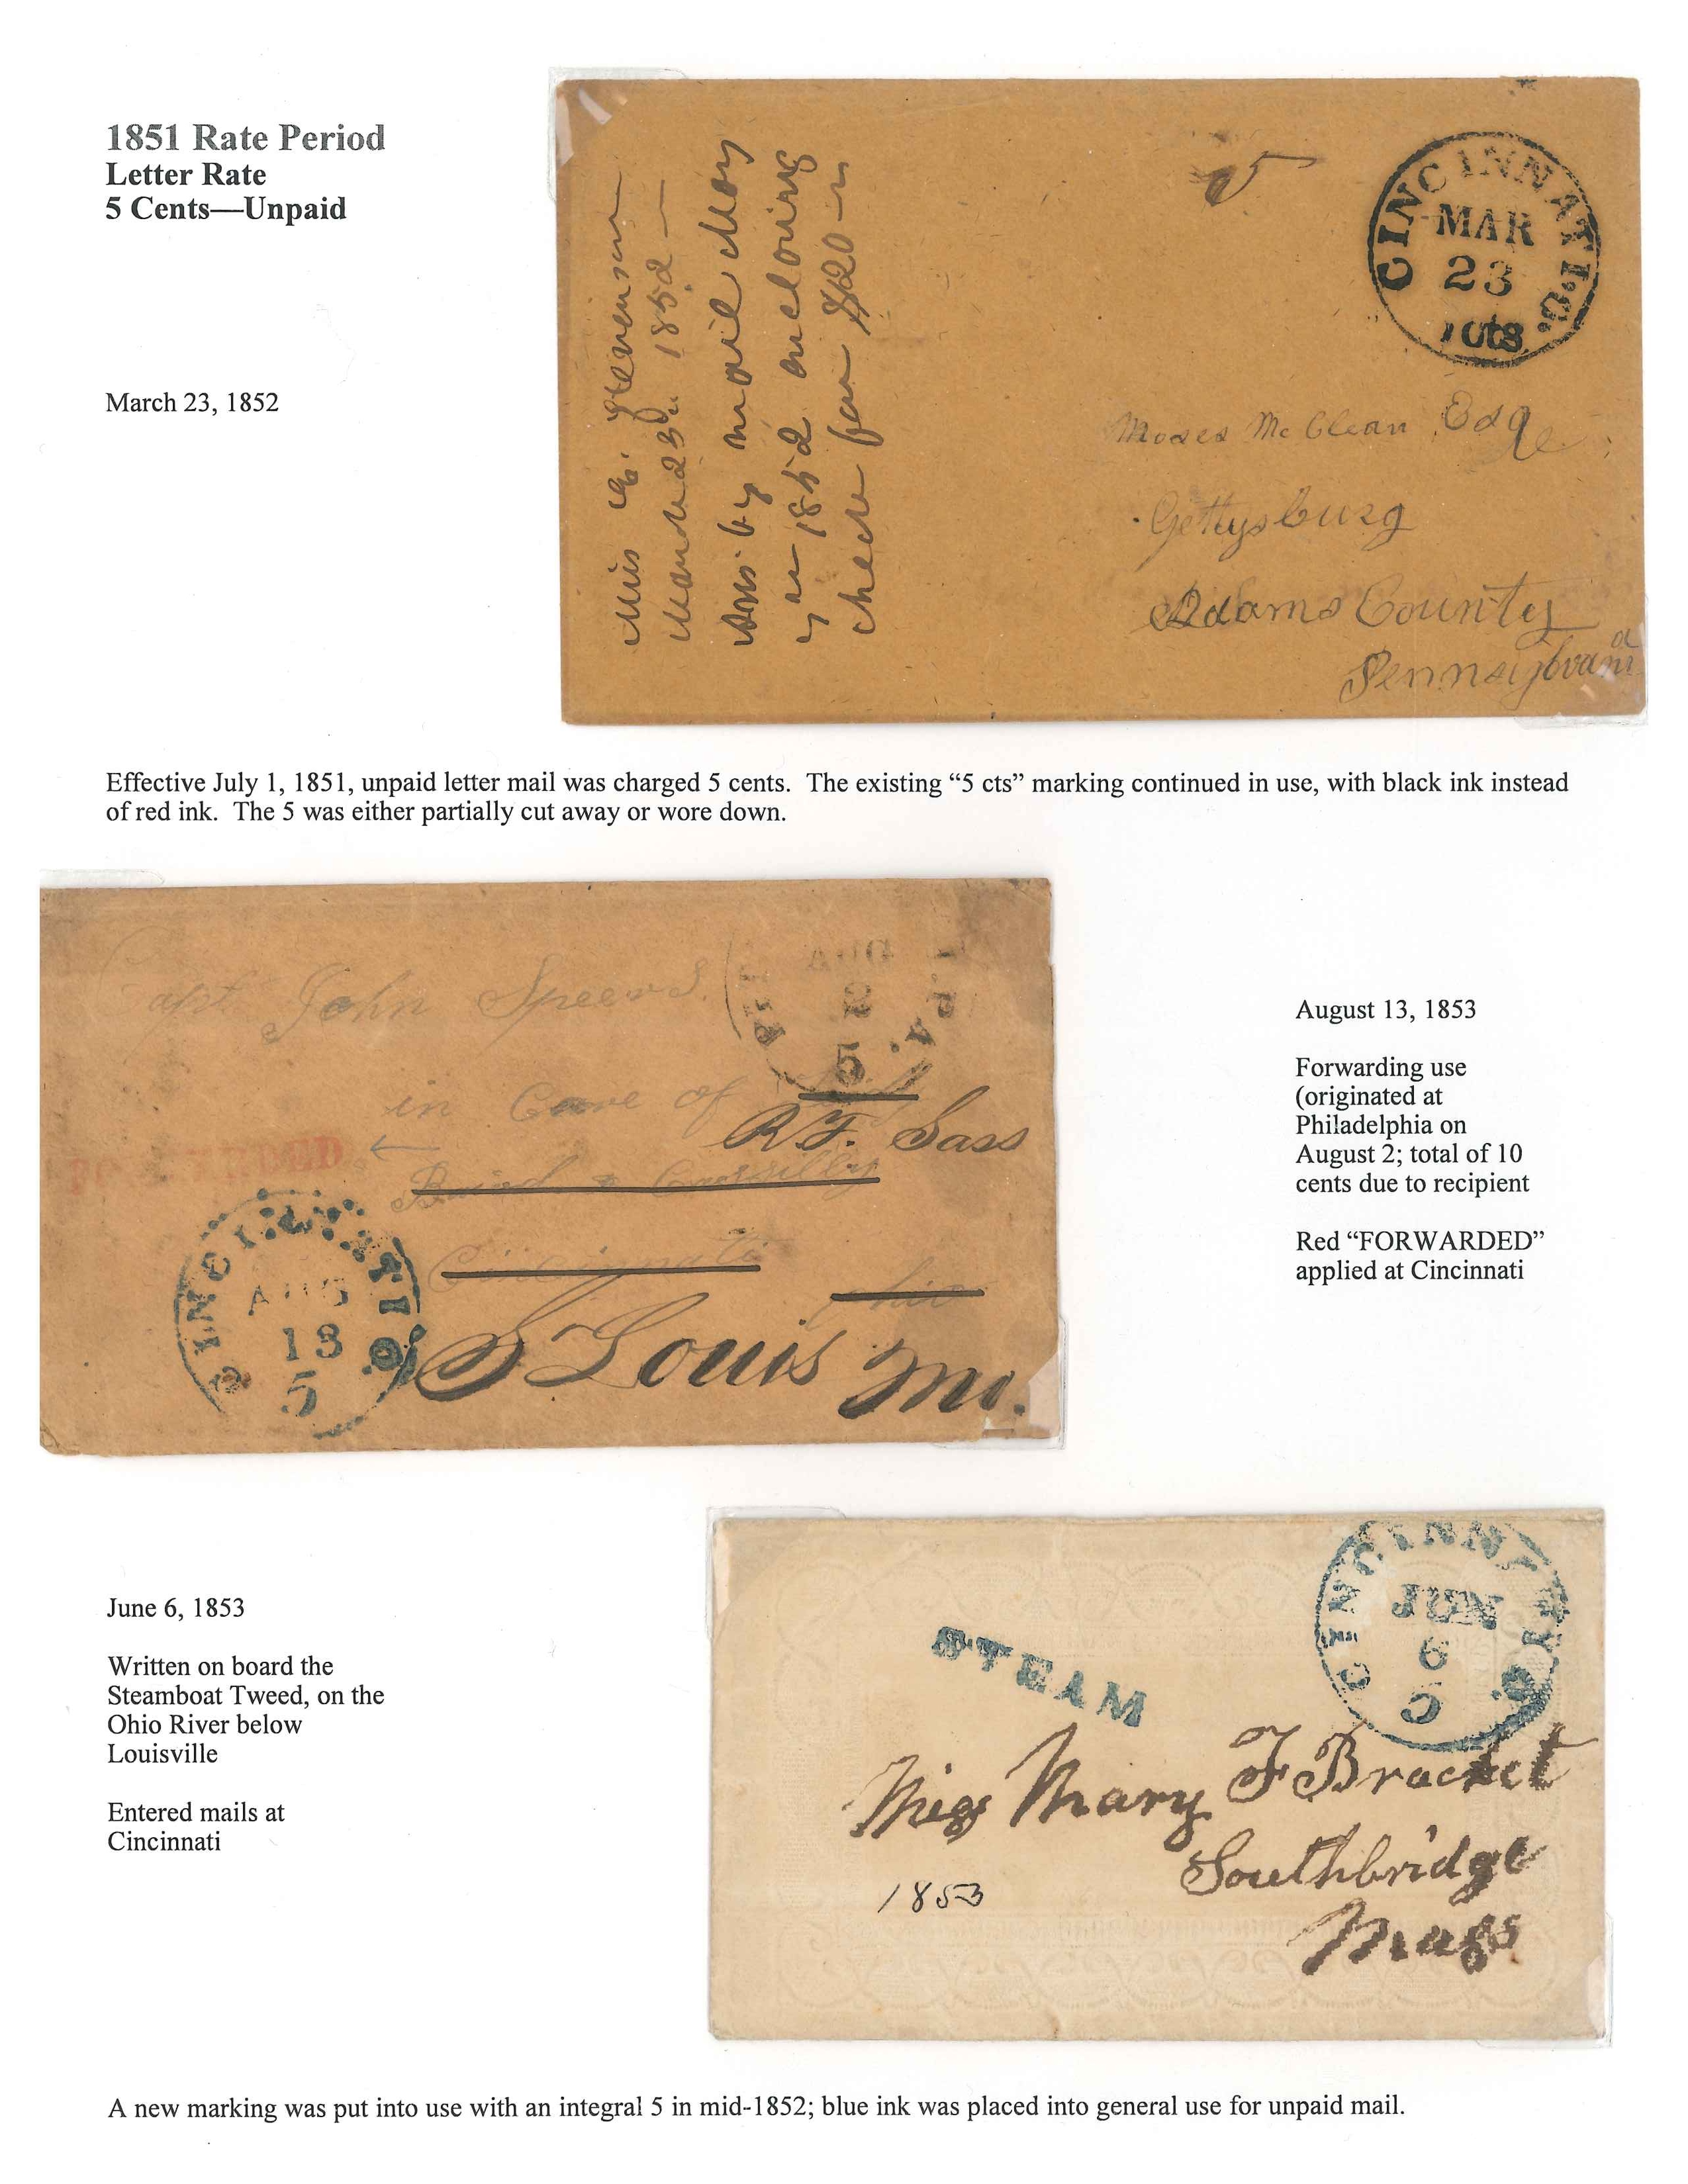 1851 Rate Period
Letter Rate
5 Cents—Unpaid
March 23, 1852
March 23d 1852 —
by mail
1852
check for $20
5
CINCINNATI O.
MAR
23
cts
Moses McClean Esq
Gettysburg
Adams County
Pennsylvania
Effective July 1, 1851, unpaid letter mail was charged 5 cents.  The existing “5 cts” marking continued in use, with black ink instead
of red ink.  The 5 was either partially cut away or wore down.
Capt John Speers.
in Care of
R.F. Sass
FORWARDED
Baird & Cassilly
Cincinnati
Ohio
St Louis Mo.
PHILA
PA.
2
5
CINCINNATI O.
AUG
13
5
August 13, 1853
Forwarding use
(originated at
Philadelphia on
August 2; total of 10
cents due to recipient
Red “FORWARDED”
applied at Cincinnati
June 6, 1853
Written on board the
Steamboat Tweed, on the
Ohio River below
Louisville
Entered mails at
Cincinnati
CINCINNATI O.
JUN
6
5
STEAM
Miss Mary F Bracket
Southbridge
Mass
1853
A new marking was put into use with an integral 5 in mid-1852; blue ink was placed into general use for unpaid mail.